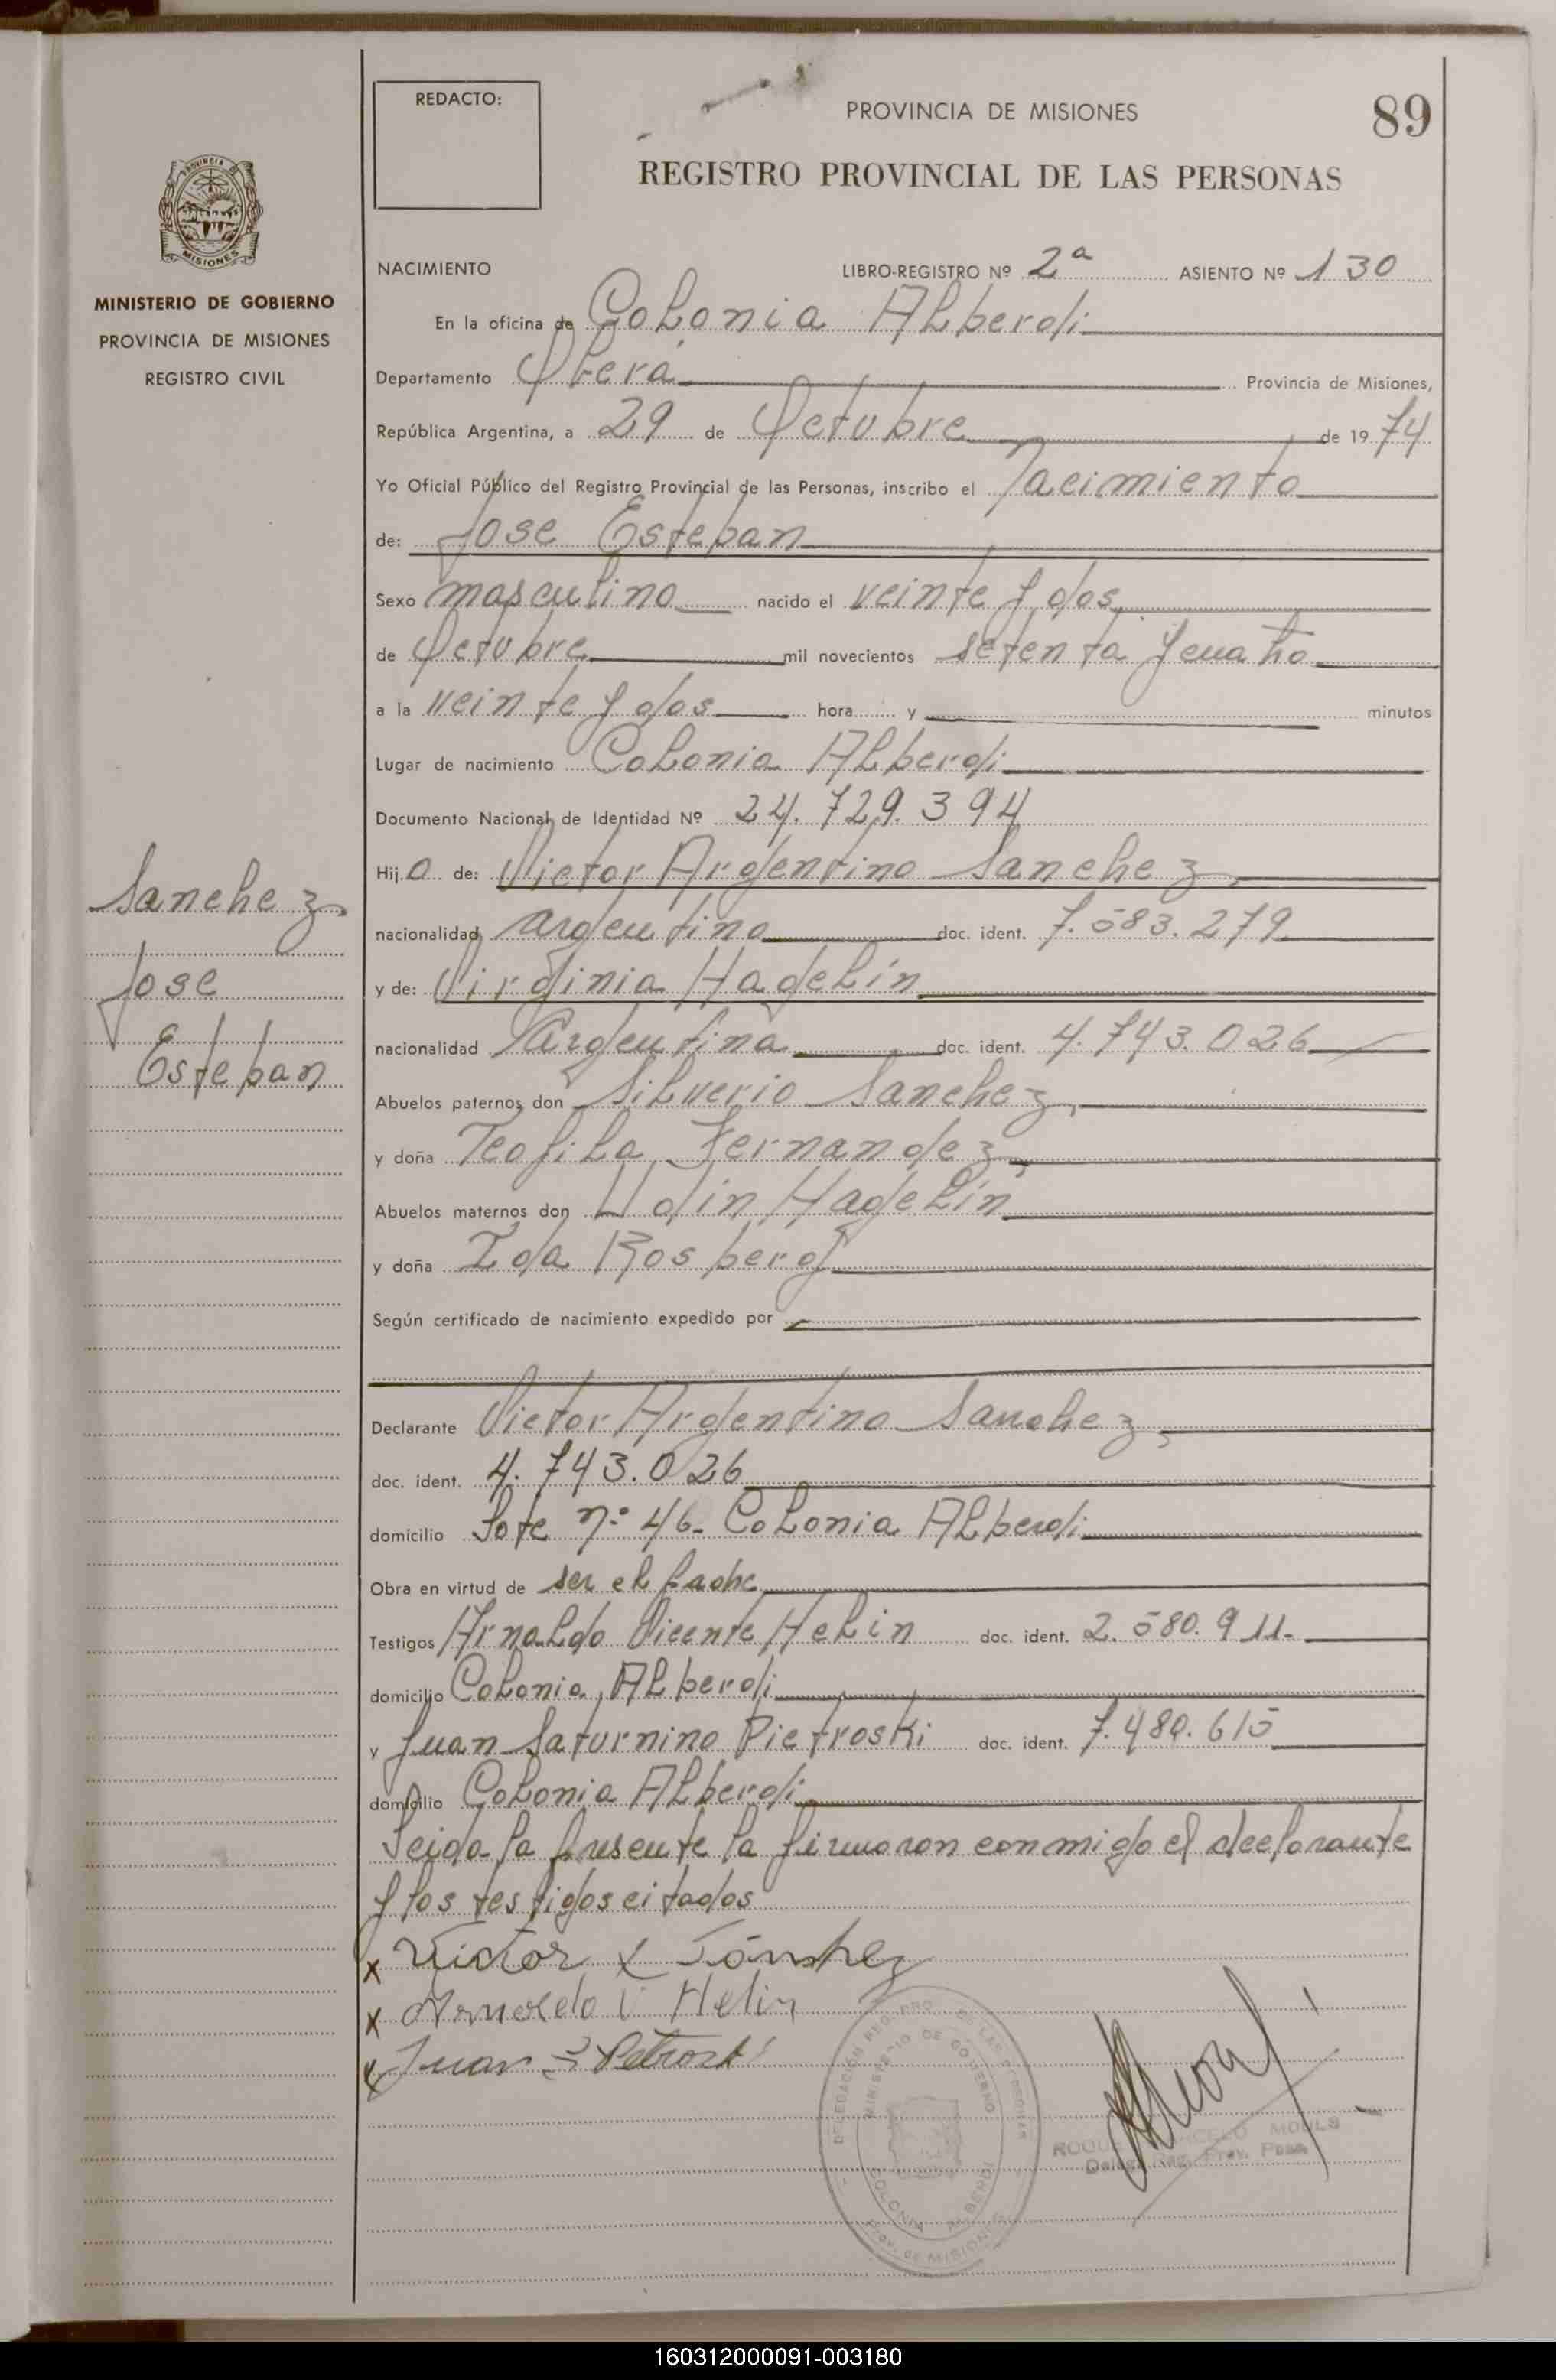 REDACTO:
PROVINCIA DE MISIONES
89
REGISTRO PROVINCIAL DE LAS PERSONAS
PROVINCIA
MISIONES
MINISTERIO DE GOBIERNO
PROVINCIA DE MISIONES
REGISTRO CIVIL
NACIMIENTO LIBRO-REGISTRO Nº 2ª ASIENTO Nº 130
En la oficina de Colonia Alberdi
Departamento Oberá Provincia de Misiones,
República Argentina, a 29 de Octubre de 1974
Yo Oficial Público del Registro Provincial de las Personas, inscribo el Nacimiento
de: Jose Esteban
Sexo masculino nacido el veinte y dos
de Octubre mil novecientos setenta y cuatro
a la veinte y dos hora y minutos
Lugar de nacimiento Colonia Alberdi
Documento Nacional de Identidad Nº 24.729.394
Hijo de: Victor Argentino Sanchez
nacionalidad argentino doc. ident. 7.583.279
y de: Virginia Hagelin
nacionalidad Argentina doc. ident. 4.743.026
Abuelos paternos don Silverio Sanchez
y doña Teofila Fernandez
Abuelos maternos don Udin Hagelin
y doña Ida Rosberg
Según certificado de nacimiento expedido por
Declarante Victor Argentino Sanchez
doc. ident. 4.743.026
domicilio Lote n.º 46. Colonia Alberdi
Obra en virtud de ser el padre
Testigos Arnaldo Vicente Helin doc. ident. 2.580.911.
domicilio Colonia Alberdi
y Juan Saturnino Pietroski doc. ident. 7.480.615
domicilio Colonia Alberdi
Leida la presente la firmaron conmigo el declarante
y los testigos citados
x Victor x Sánchez
x Arnoldo V Helin
x Juan S Petroski
Sanchez
Jose
Esteban
DELEGACION REG. PROV. DE LAS PERSONAS
MINISTERIO DE GOBIERNO
COLONIA ALBERDI
Prov. DE MISIONES
ROQUE MARCELO MOULS
Deleg. Reg. Prov. Pers.
160312000091-003180